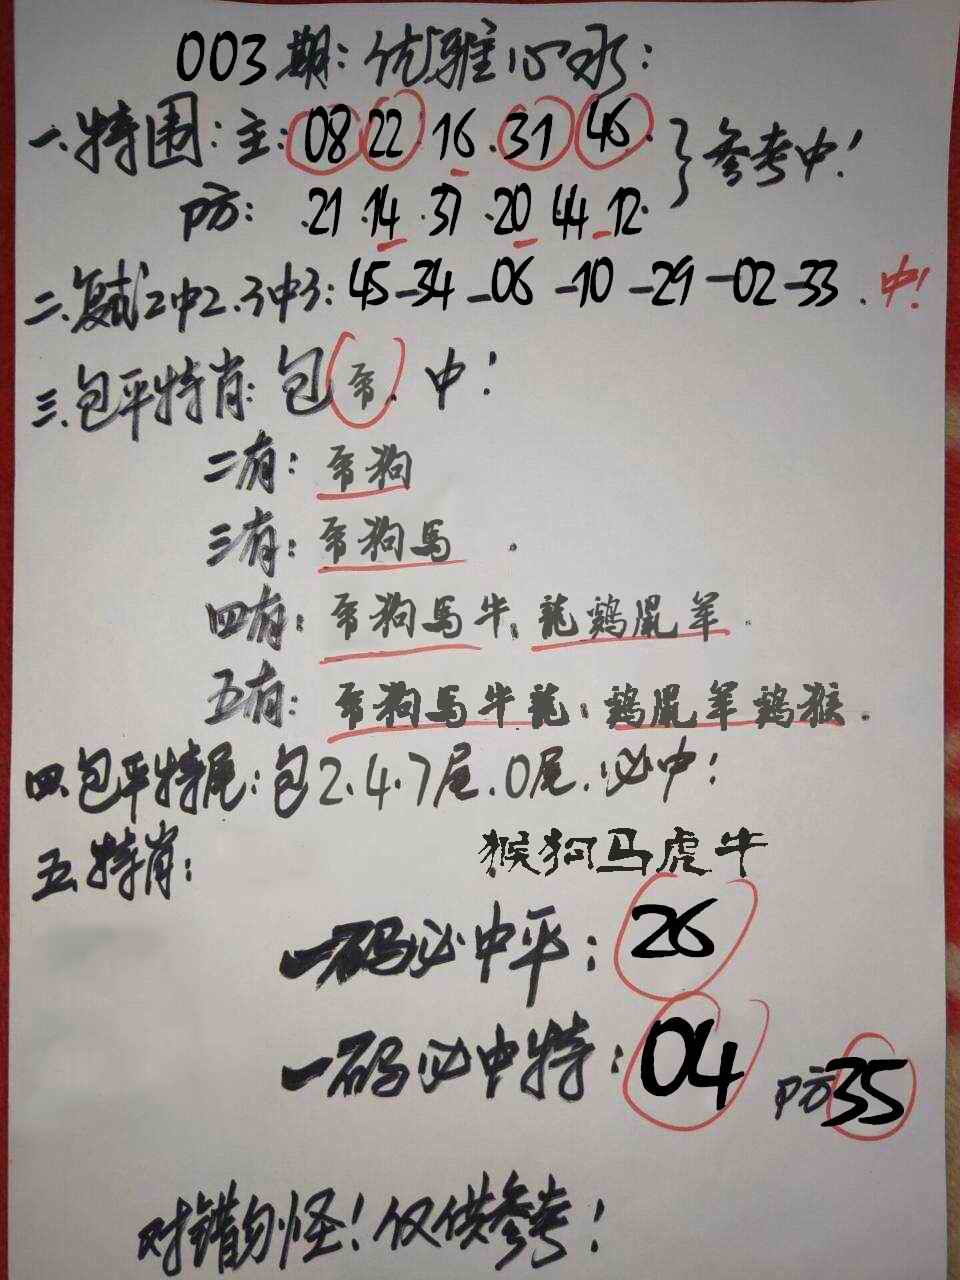 003期:优雅心水:
一.特围:主:08 22·16·31 46·}参考中!
防:·21·14·37·20 44·12·
二.复式2中2.3中3:45-34-06-10-29-02-33.中!
三.包平特肖:包.中!
二有:狗
三有:狗馬.
四有:狗馬牛.龍鷄鼠羊.
五有:狗馬牛龍.鷄鼠羊鷄猴.
四.包平特尾:包2.4.7尾.0尾.必中!
五.特肖:猴狗马虎牛
一码必中平:26
一码必中特:04 防35
对错勿怪!仅供参考!